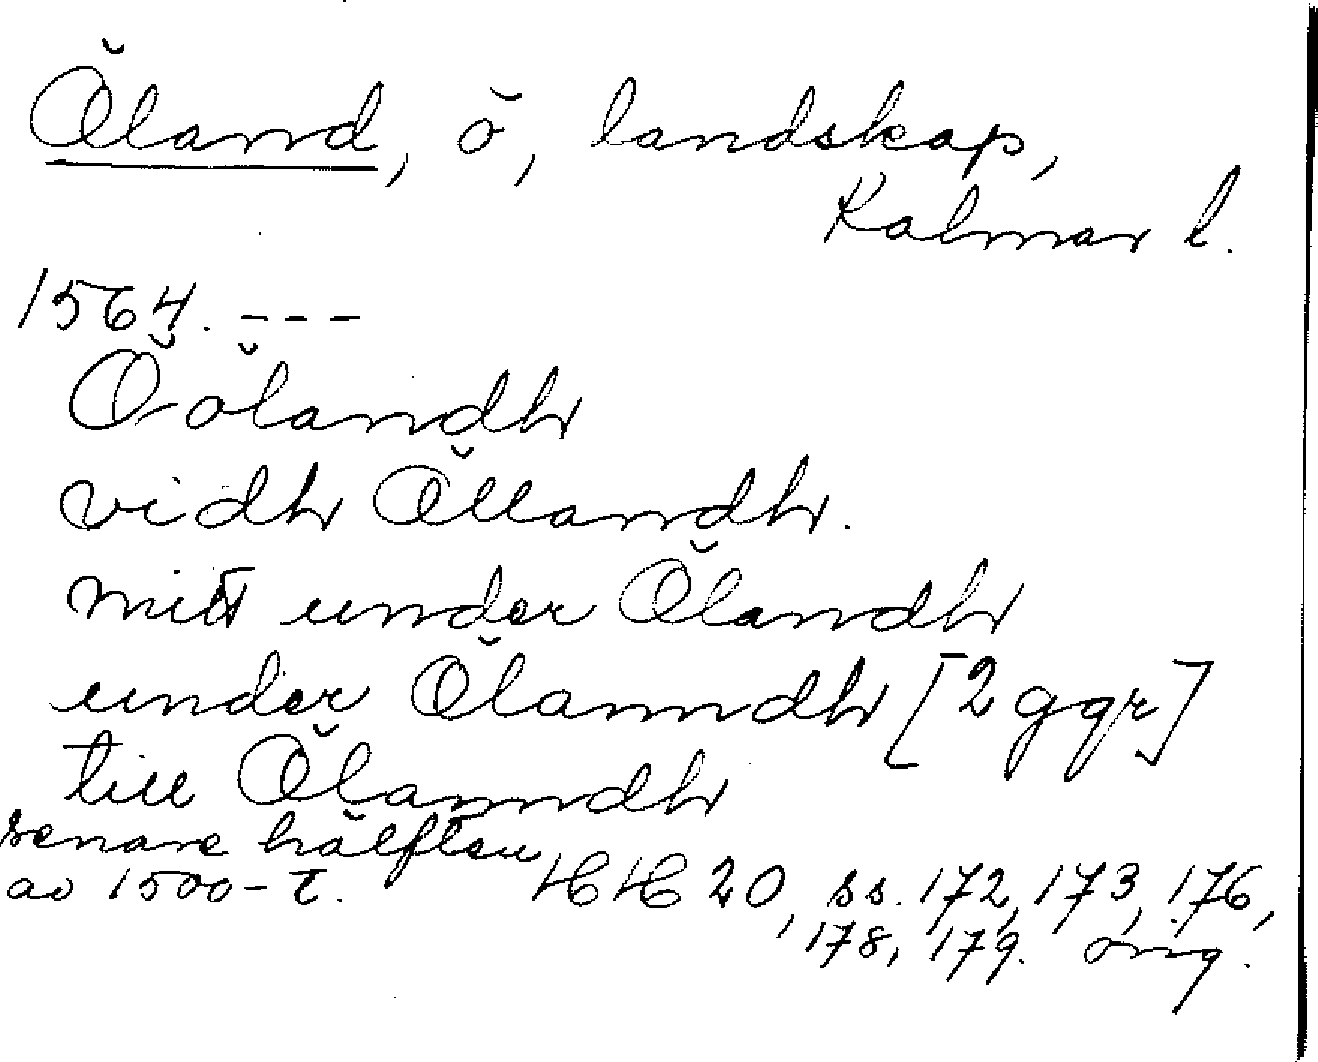 Öland, ö, landskap,
Kalmar l.
1564. ---
Öölandh
vidh Öllandh.
mitt under Ölandh
under Ölanndh [2 ggr]
till Ölanndh
senare hälften
av 1500-t. HH 20, ss. 172, 173, 176,
178, 179. orig.